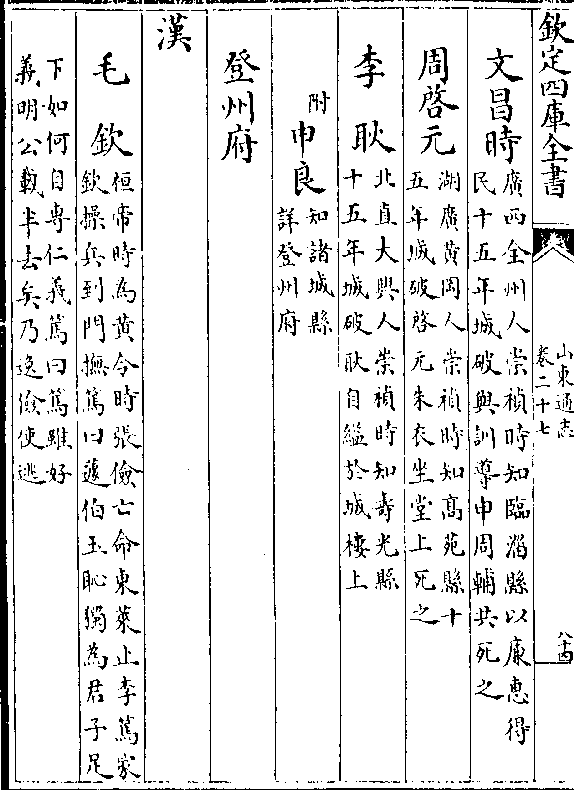 欽定四庫全書
山東通志
卷二十七
八十四
文昌時
廣西全州人崇禎時知臨淄縣以廉惠得
民十五年城破與訓導申周輔共死之
周啓元
湖廣黄岡人崇禎時知髙苑縣十
五年城破啓元朱衣坐堂上死之
李耿
北直大興人崇禎時知壽光縣
十五年城破耿自縊於城樓上
附申良
知諸城縣
詳登州府
登州府
漢
毛欽
桓帝時為黄令時張儉亡命東萊止李篤家
欽操兵到門撫篤曰蘧伯玉恥獨為君子足
下如何自專仁義篤曰篤雖好
義明公載半去矣乃逸儉使逃